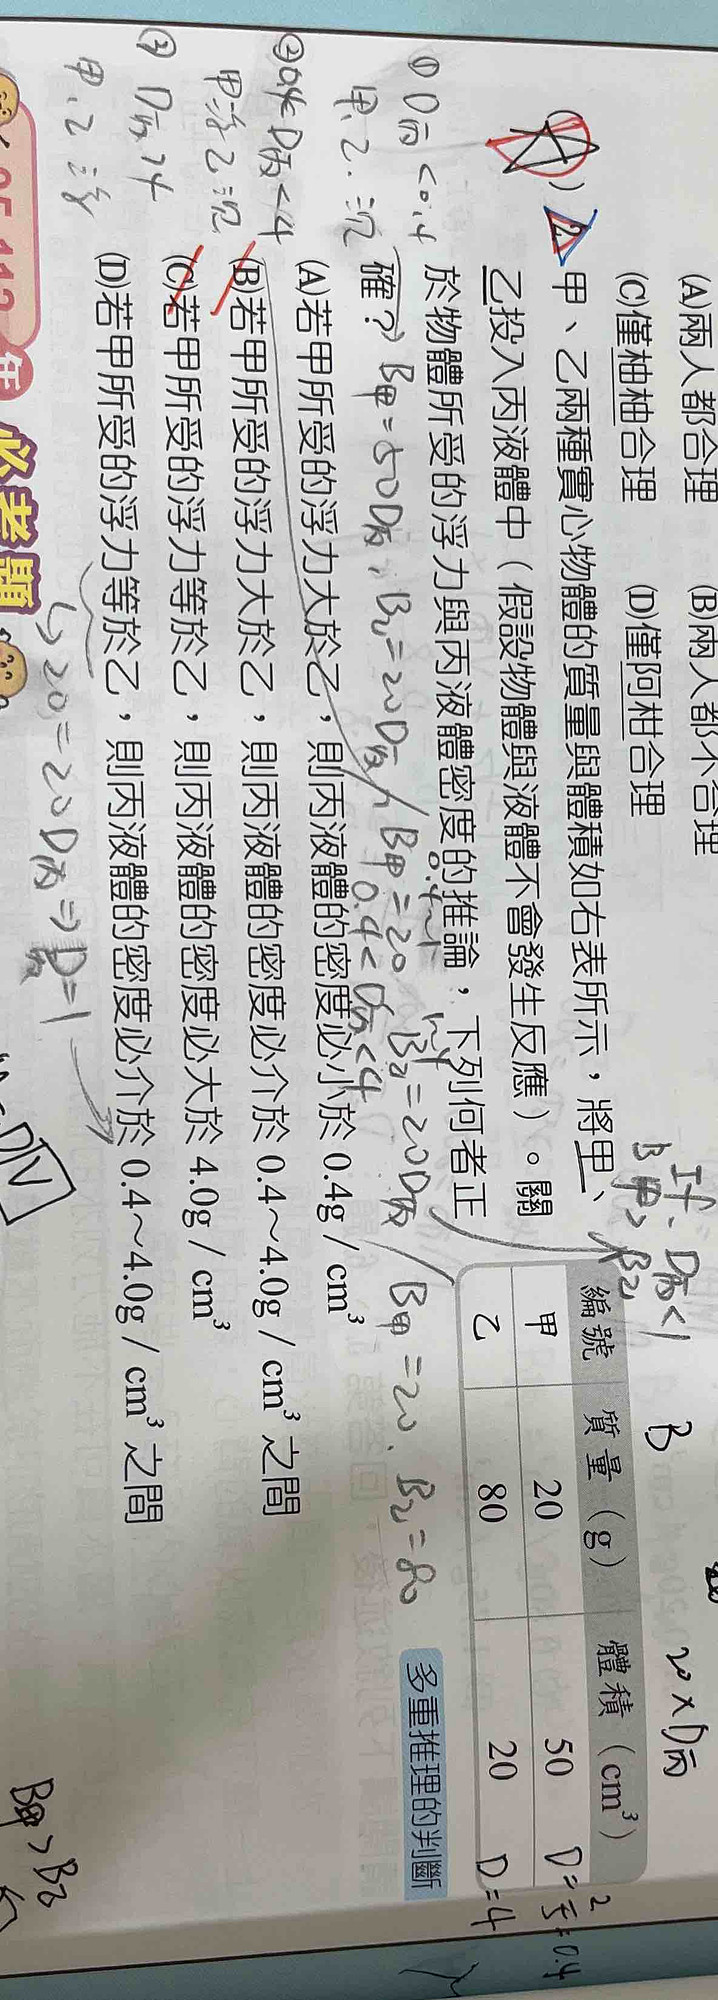 (A)兩人都合理 (B)兩人都不合理
(C)僅柚柚合理 (D)僅阿柑合理
2. 甲、乙兩種實心物體的質量與體積如右表所示,將甲、
乙投入丙液體中(假設物體與液體不會發生反應)。關
於物體所受的浮力與丙液體密度的推論,下列何者正
確?
(A)若甲所受的浮力大於乙,則丙液體的密度必小於 0.4g/cm³
(B)若甲所受的浮力大於乙,則丙液體的密度必介於 0.4~4.0g/cm³ 之間
(C)若甲所受的浮力等於乙,則丙液體的密度必大於 4.0g/cm³
(D)若甲所受的浮力等於乙,則丙液體的密度必介於 0.4~4.0g/cm³ 之間
編號 質量(g) 體積(cm³)
甲 20 50
乙 80 20
多重推理的判斷
D=2/5=0.4
D=4
① D丙<0.4
甲、乙:沉
②0.4<D丙<4
甲浮乙沉
③ D丙>4
甲、乙:浮
B甲=50D丙, B乙=20D丙 / B甲=20 B乙=20D丙 / B甲=20、B乙=80
0.4<D丙<4
↳20=20D丙⇒D丙=1
D丙<1
B甲>B乙
B
20×D丙
B甲>B乙
年 必考題